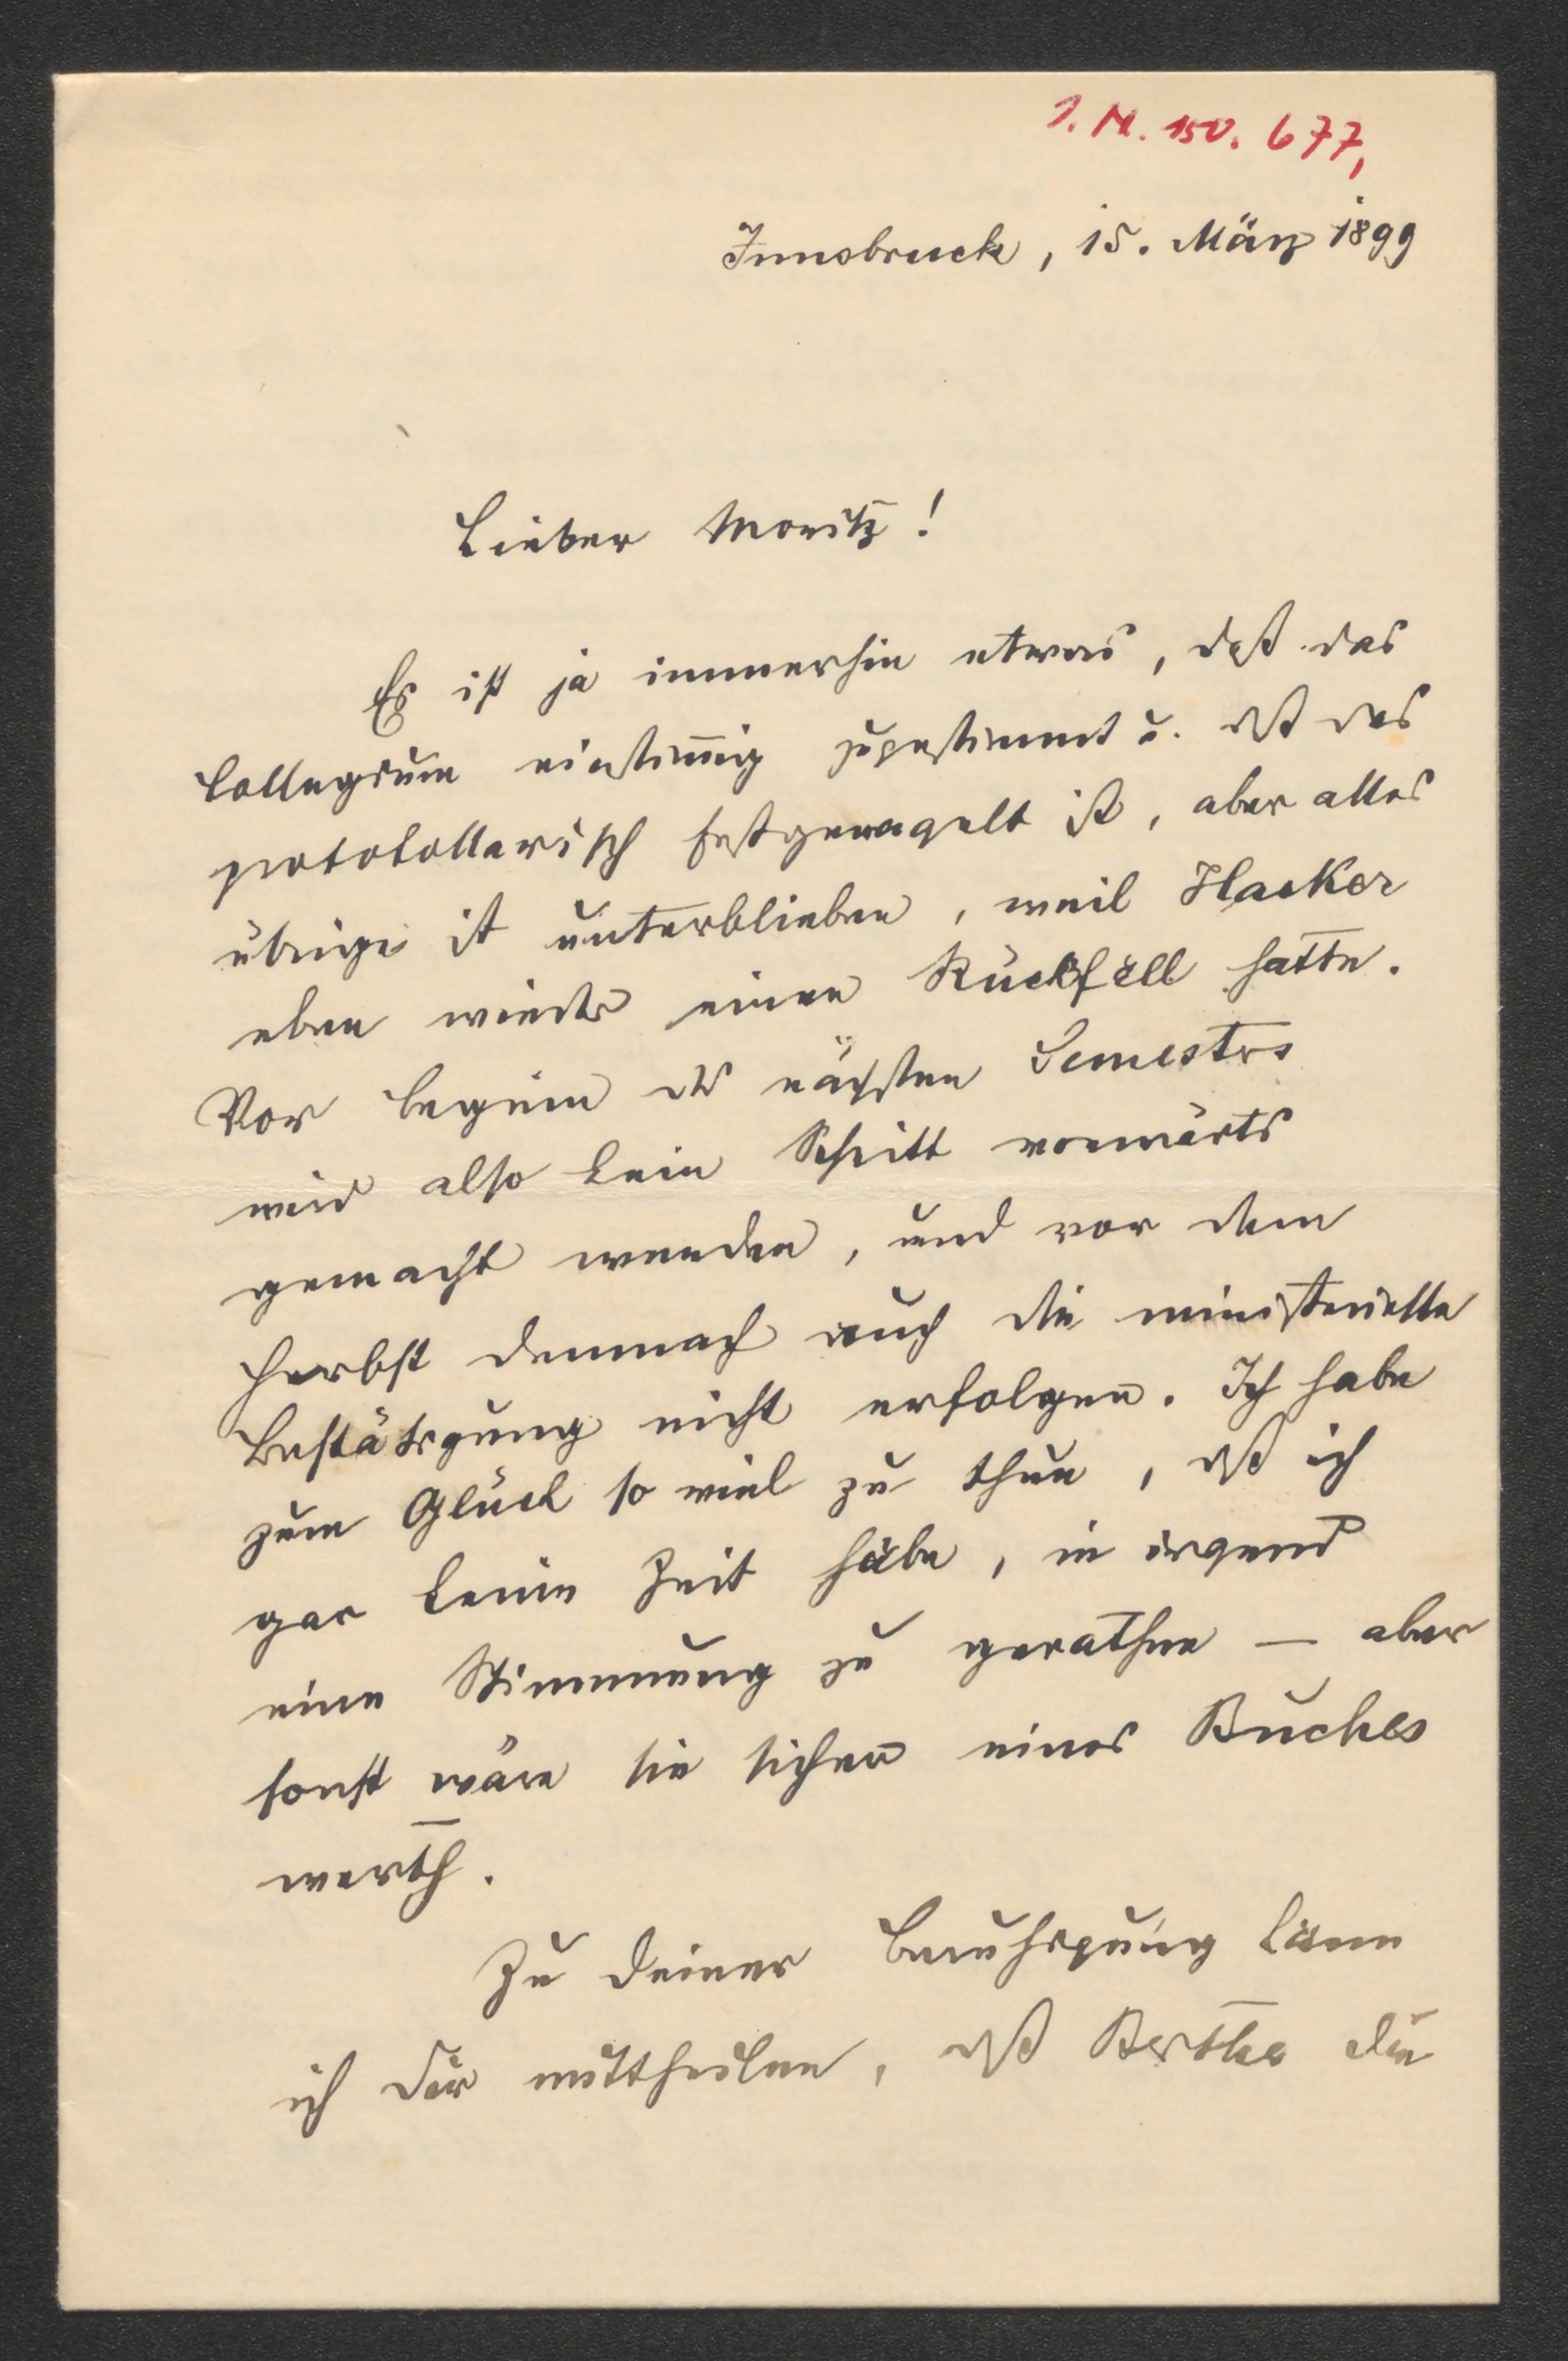 I. N. 150.677,
Innsbruck, 15. März 1899
Lieber Moritz!
Es ist ja immerhin etwas, daß das
Collegium einstim̄ig zugestimmt u. dß das
protokollarisch festgenagelt ist, aber alles
übrige ist unterblieben, weil Hacker
eben wieder einen Rückfall hatte.
Vor Beginn des nächsten Semesters
wird also kein Schritt vorwärts
gemacht werden, und vor dem
Herbst demnach auch die ministerielle
Bestätigung nicht erfolgen. Ich habe
zum Glück so viel zu thun, dß ich
gar keine Zeit habe, in irgend
eine Stimmung zu gerathen — aber
sonst wäre sie sicher eines Buches
werth.
Zu deiner Beruhigung kann
ich dir mittheilen, dß Berthe die